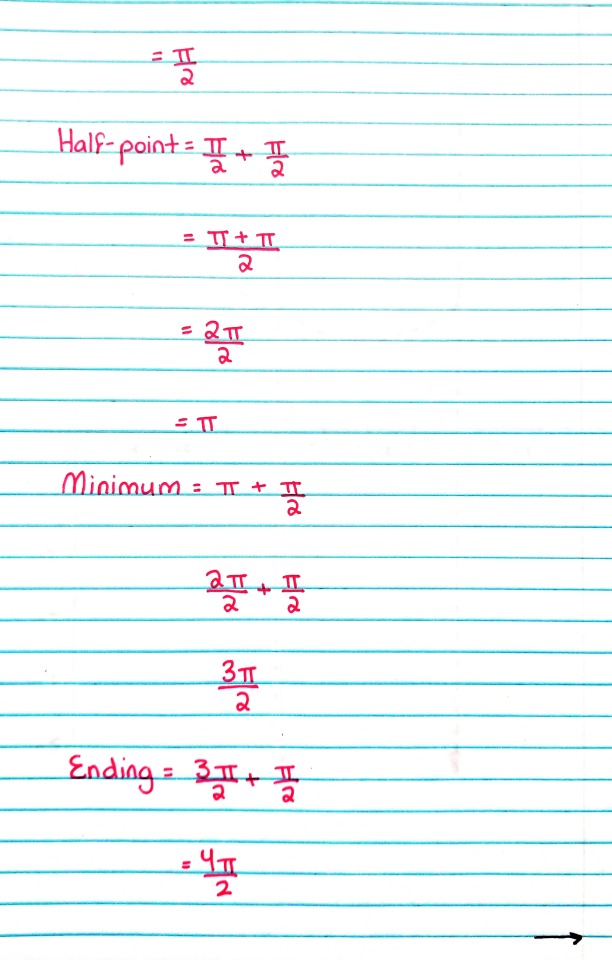 = π/2
Half-point = π/2 + π/2
= π + π/2
= 2π/2
= π
Minimum = π + π/2
2π/2 + π/2
3π/2
Ending = 3π/2 + π/2
= 4π/2
→